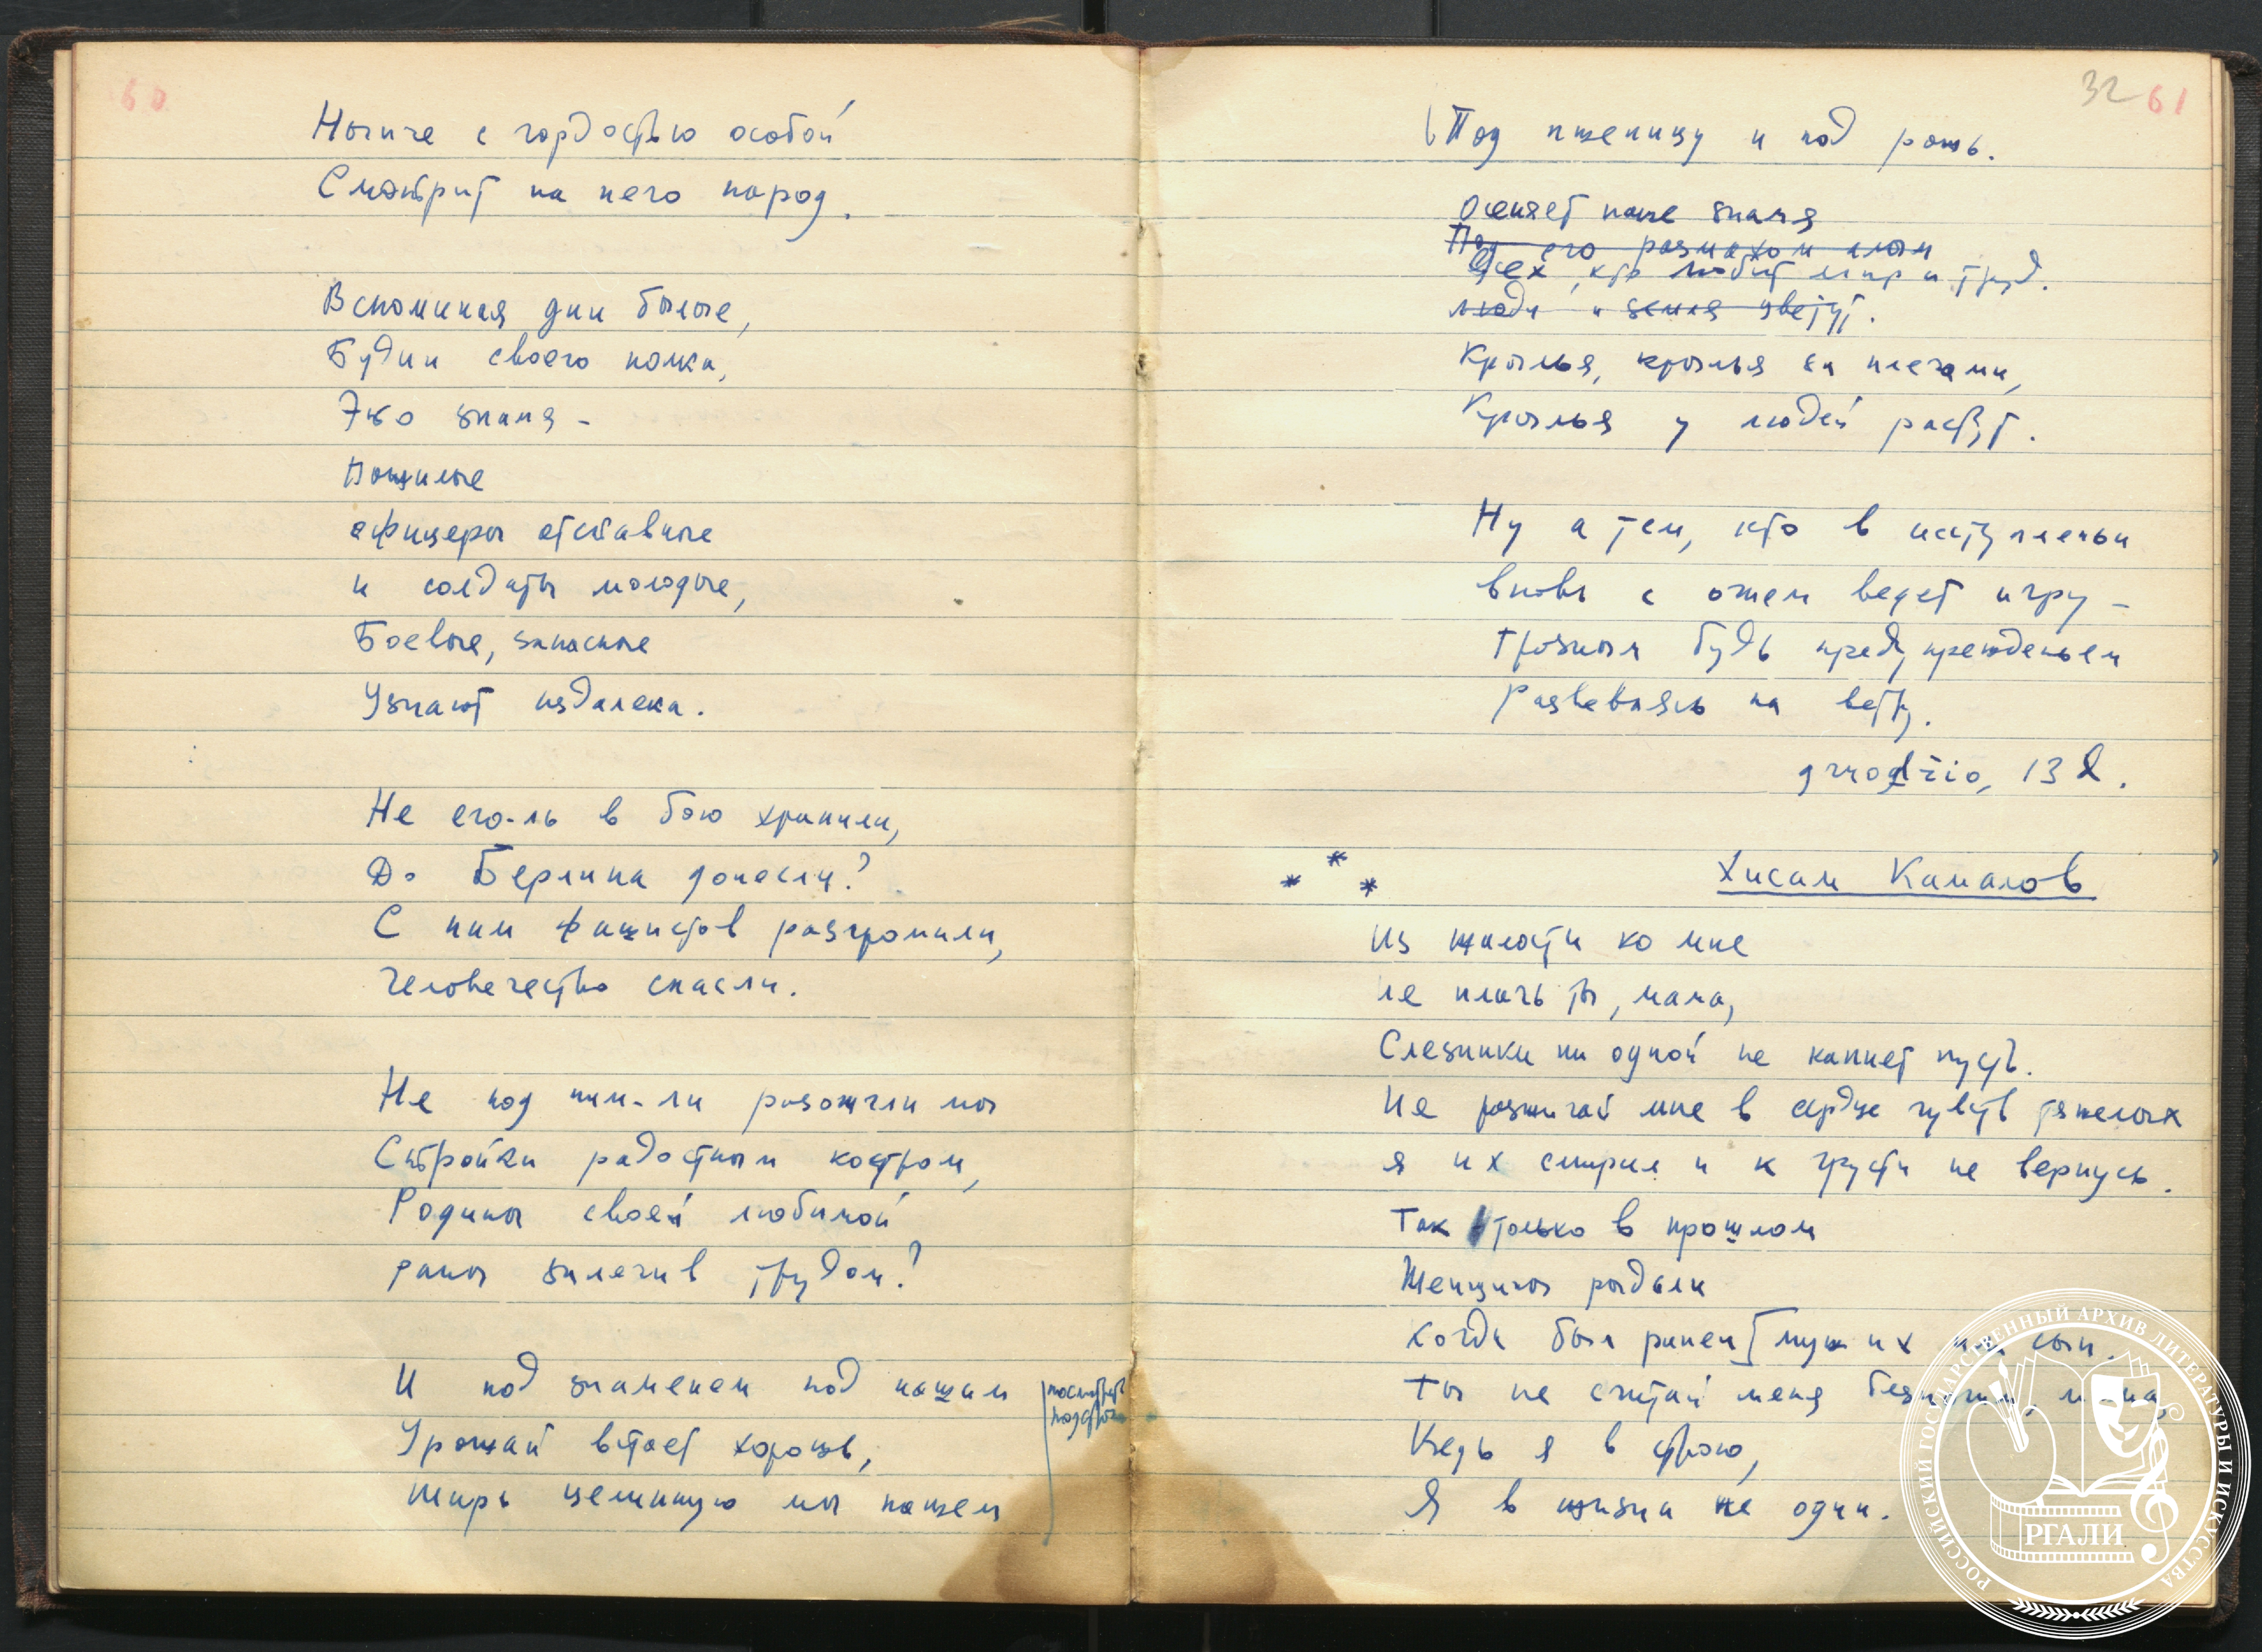 60
Нынче с гордостью особой
Смотрит на него народ.
Вспоминая дни былые,
Будни своего полка,
Это знамя -
Пожилые
офицеры отставные
и солдаты молодые,
Боевые, запасные
Узнают издалека.
Не его-ль в бою хранили,
До Берлина донесли?
С ним фашистов разгромили,
Человечество спасли.
Не под ним-ли разожгли мы
Стройки радостным костром,
Родины своей любимой
раны залечив трудом?
И под знаменем под нашим
Урожай встает хорош,
Ширь целинную мы пашем
32 61
Под пшеницу и под рожь.
Осеняет наше знамя
Под его размахом алым
Всех, кто любит мир и труд.
люди и земля цветут.
Крылья, крылья за плечами,
Крылья у людей растут.
Ну а тем, кто в исступленьи
вновь с огнем ведет игру -
Грозным будь предупрежденьем
Развеваясь на ветру.
gruodžio, 13 d.
* * *
Хисам Камалов
Из жалости ко мне
не плачь ты, мама,
Слезинки ни одной не капнет пусть.
Не разжигай мне в сердце чувств тяжелых
я их смирил и к грусти не вернусь.
Так только в прошлом
Женщины рыдали
когда был ранен муж их или сын.
Ты не считай меня безногим, мама,
Ведь я в строю,
Я в жизни не один.
РОССИЙСКИЙ ГОСУДАРСТВЕННЫЙ АРХИВ ЛИТЕРАТУРЫ И ИСКУССТВА
РГАЛИ